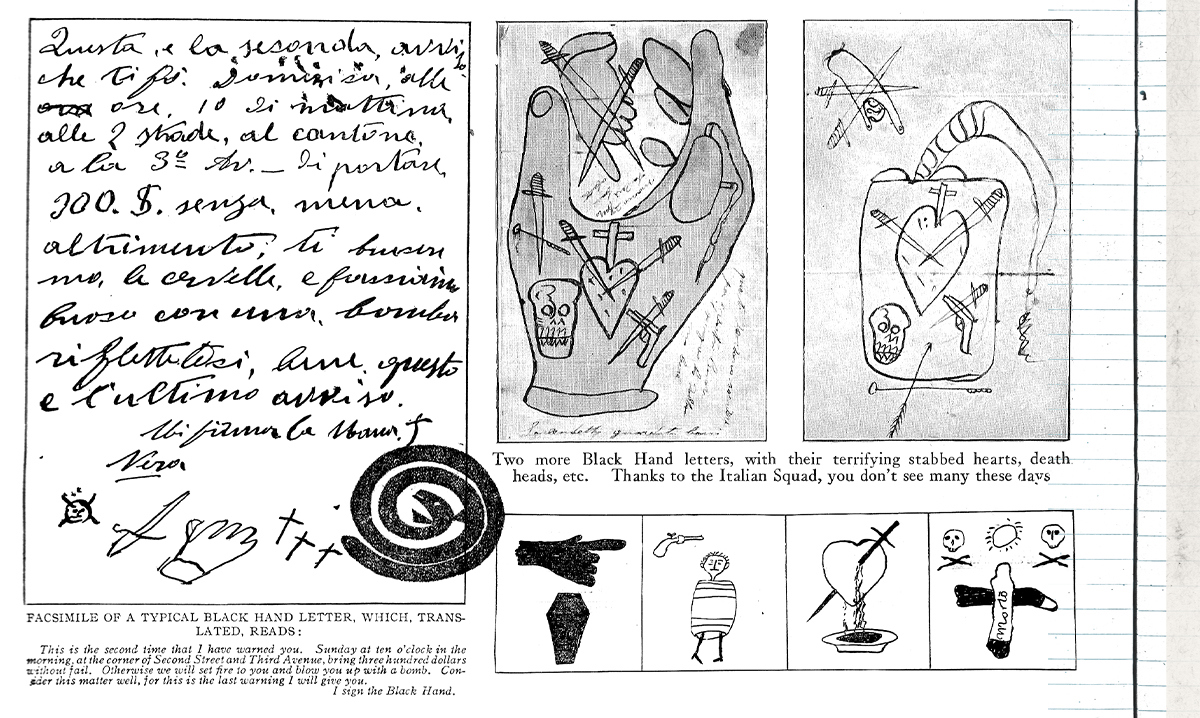 Questa, e la seconda, avviso
che ti fó. Dominica, alle
ore, 10 di mattina,
alle 2 strade, al cantone,
a la 3ª Av. _ di portare
300. $. senza, meno.
altrimento, ti
mo, le cervelle, e
con una, bomba
bene, questo
e l'ultimo avviso.
Mi firmo la Mano.
Nera
Morto
Two more Black Hand letters, with their terrifying stabbed hearts, death
heads, etc. Thanks to the Italian Squad, you don't see many these days
FACSIMILE OF A TYPICAL BLACK HAND LETTER, WHICH, TRANS-
LATED, READS:
This is the second time that I have warned you. Sunday at ten o'clock in the
morning, at the corner of Second Street and Third Avenue, bring three hundred dollars
without fail. Otherwise we will set fire to you and blow you up with a bomb. Con-
sider this matter well, for this is the last warning I will give you.
I sign the Black Hand.